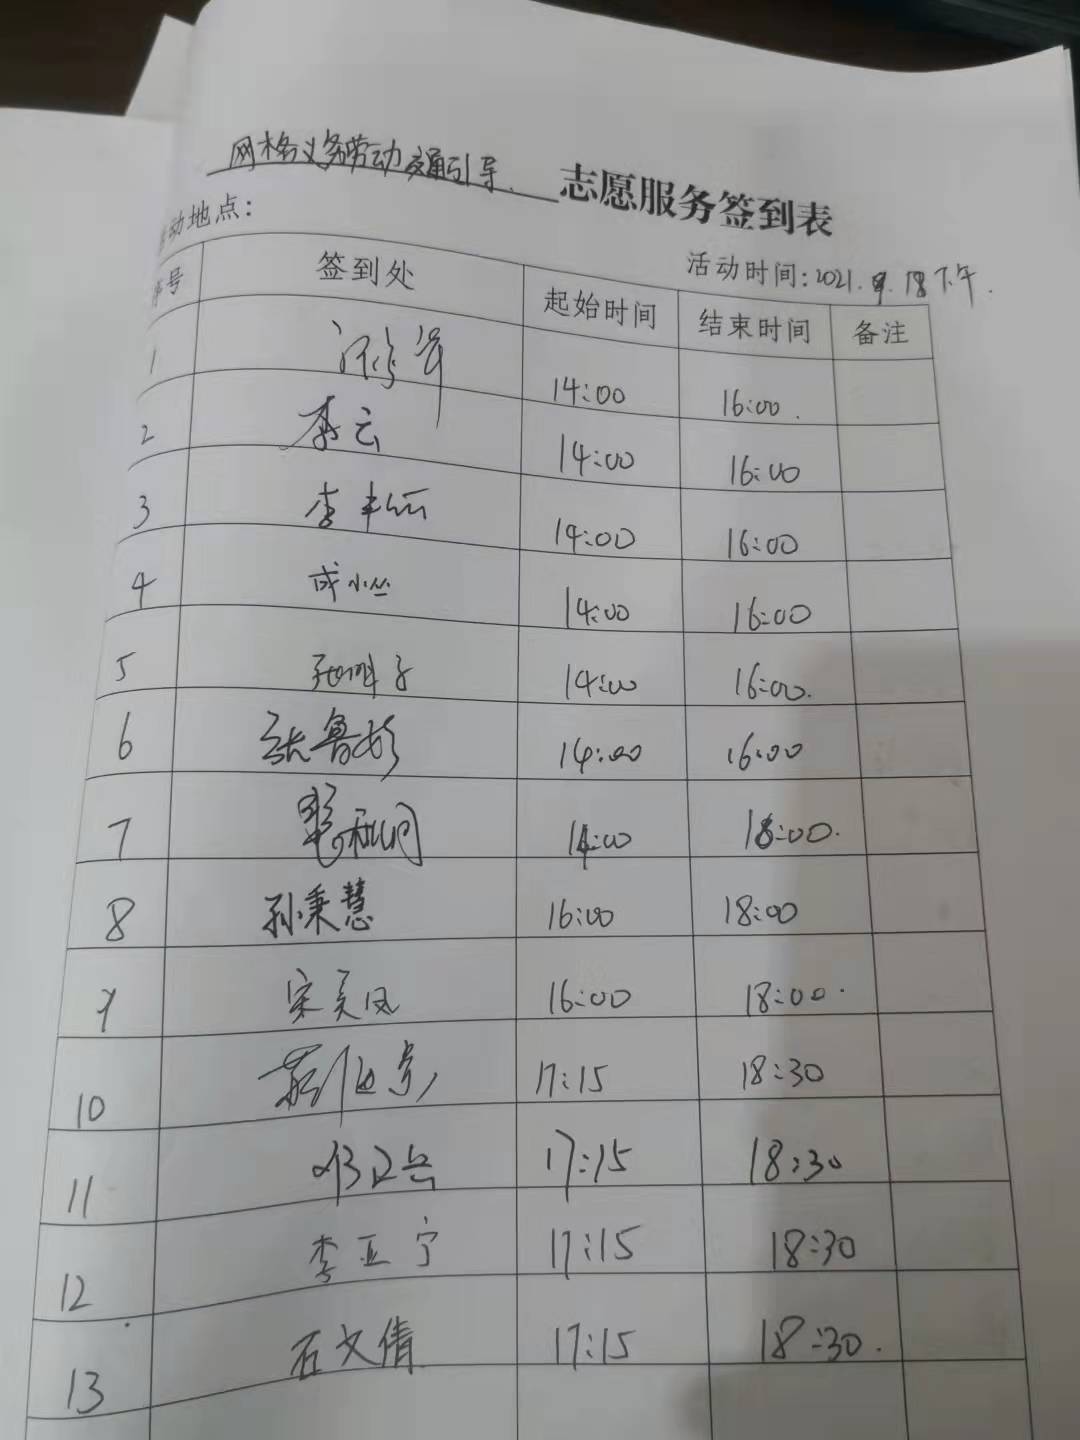 网格义务劳动交通引导. 志愿服务签到表
动地点:
活动时间:2021.9.18下午.
序号 签到处 起始时间 结束时间 备注
1 14:00 16:00.
2 李云 14:00 16:00
3 李 14:00 16:00
4 成小丛 14:00 16:00
5 14:00 16:00.
6 张鲁彬 14:00 16:00
7 14:00 18:00.
8 孙秉慧 16:00 18:00
9 宋美凤 16:00 18:00.
10 17:15 18:30
11 17:15 18:30
12 李亚宁 17:15 18:30
13 石文倩 17:15 18:30.